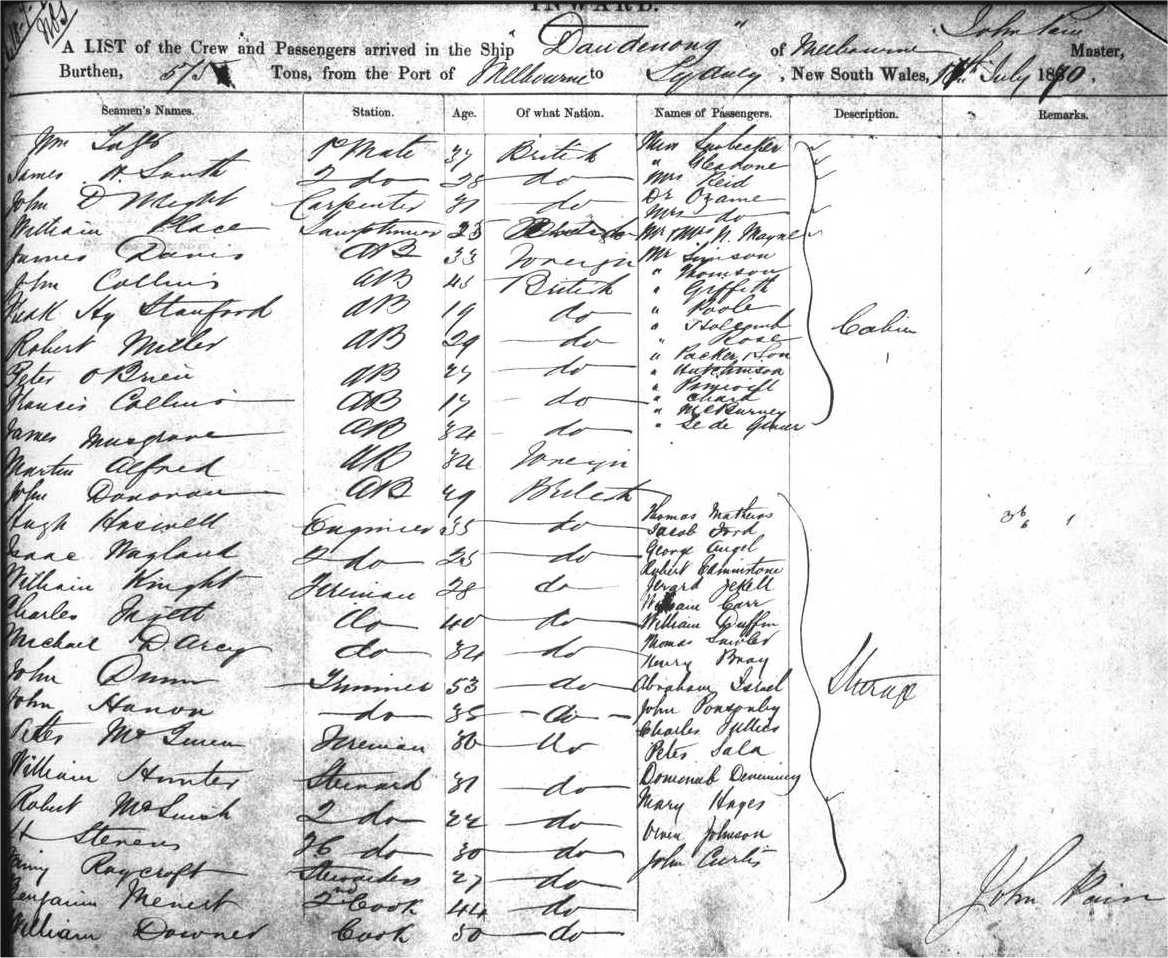 INWARD.
A LIST of the Crew and Passengers arrived in the Ship Dandenong of Melbourne John Pain Master,
Burthen, 575 Tons, from the Port of Melbourne to Sydney, New South Wales, July 1870.
Seamen's Names. Station. Age. Of what Nation. Names of Passengers. Description. Remarks.
Wm Mate 37 British
James H South 2 do 28 do
John D Wright Carpenter 31 do
William Place Lamptrimmer 25
James Davis AB 33 Foreign
John Collins AB British
Hy Stanford AB 19 do
Robert Miller AB 29 do
Peter O'Brien AB 27 do
Francis Collins AB 17 do
James Musgrove AB 34 do
Martin Alfred AB 34 Foreign
John Donovan AB 29 British
Hugh Haswell Engineer 35 do
Isaac Wayland 2 do 25 do
William Knight Fireman 28 do
Charles do 40 do
Michael D'Arcy do 34 do
John Dunn Trimmer 53 do
John Hanon do 35 do
Fireman 36 do
William Hunter Steward 31 do
Robert 2 do 22 do
H Stevens do 30 do
Raycroft Stewardess 27 do
Benjamin 2nd Cook 44 do
William Downer Cook 50 do
Miss
" Gladone
Mrs Reid
Dr Ozanne
Mrs do
Mr & Mrs N. Mayne
Mr Simson
" Thomson
" Griffith
" Poole
" Holcomb
" Rose
" Packer & Son
" Hutchinson
"
" Chard
" McBurney
"
Cabin
Thomas Mathews
Jacob Ford
George Angel
Robert Edminstone
Jerard Jekell
William Carr
William Duffin
Thomas
Henry Bray
Abraham Israel
John Ponsonby
Charles
Peter Sala
Mary Hayes
Owen Johnson
John Curtis
Steerage
John Pain